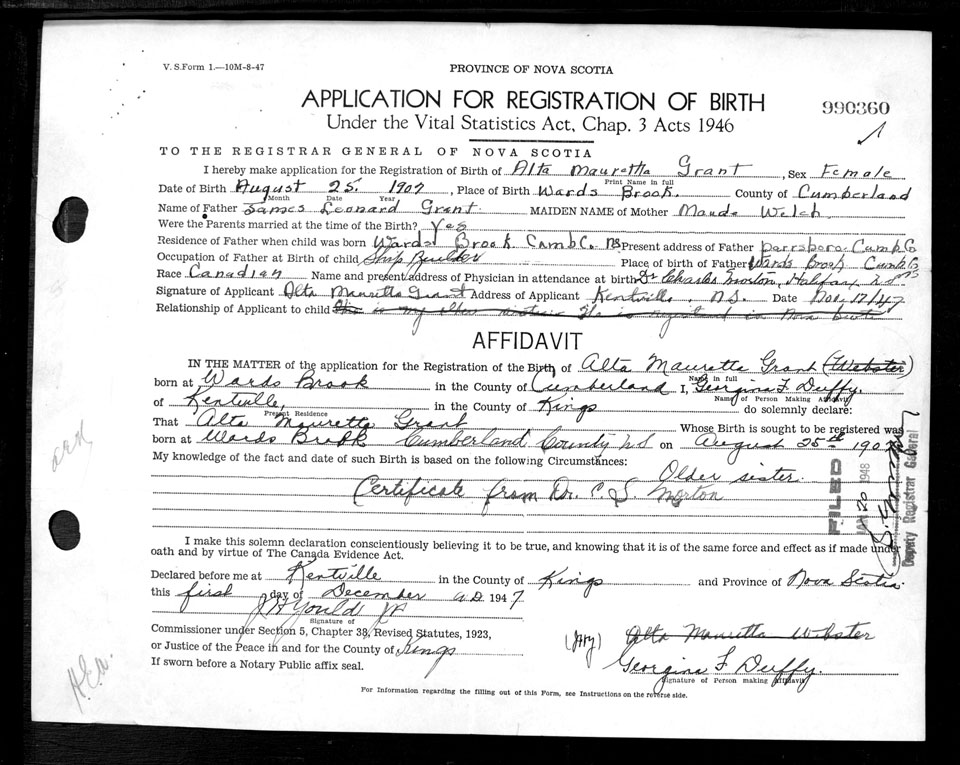 V. S. Form 1.—10M-8-47
PROVINCE OF NOVA SCOTIA
APPLICATION FOR REGISTRATION OF BIRTH
990360
Under the Vital Statistics Act, Chap. 3 Acts 1946
1
TO THE REGISTRAR GENERAL OF NOVA SCOTIA
I hereby make application for the Registration of Birth of Alta Mauretta Grant, Sex Female
Print Name in full
Date of Birth August 25. 1907, Place of Birth Wards Brook. County of Cumberland
Month Date Year
Name of Father James Leonard Grant. MAIDEN NAME of Mother Maude Welch.
Were the Parents married at the time of the Birth? Yes
Residence of Father when child was born Wards Brook Cumb Co. NS Present address of Father Parrsboro Cumb Co
Occupation of Father at Birth of child Ship Builder Place of birth of Father Wards Brook Cumb Co
Race Canadian Name and present address of Physician in attendance at birth Dr Charles Morton, Halifax, N.S.
Signature of Applicant Alta Mauretta Grant Address of Applicant Kentville, N.S. Date Nov 17/47
Relationship of Applicant to child is my older She is registered in Nova
AFFIDAVIT
IN THE MATTER of the application for the Registration of the Birth of Alta Mauretta Grant (Webster)
Name in full
born at Wards Brook in the County of Cumberland I, Georgina F. Duffy.
Name of Person Making Affidavit
of Kentville, in the County of Kings do solemnly declare:
Present Residence
That Alta Mauretta Grant Whose Birth is sought to be registered was
born at Wards Brook Cumberland County N.S on August 25th 1907
My knowledge of the fact and date of such Birth is based on the following Circumstances:
Older sister.
Certificate from Dr. C. S. Morton
FILED
JAN 20 1948
Deputy Registrar General
I make this solemn declaration conscientiously believing it to be true, and knowing that it is of the same force and effect as if made under
oath and by virtue of The Canada Evidence Act.
Declared before me at Kentville in the County of Kings and Province of Nova Scotia.
this first day of December A.D. 1947
Signature of
Commissioner under Section 5, Chapter 38, Revised Statutes, 1923,
or Justice of the Peace in and for the County of Kings
If sworn before a Notary Public affix seal.
Alta Mauretta Webster
Georgina F. Duffy.
Signature of Person making Affidavit
For Information regarding the filling out of this Form, see Instructions on the reverse side.